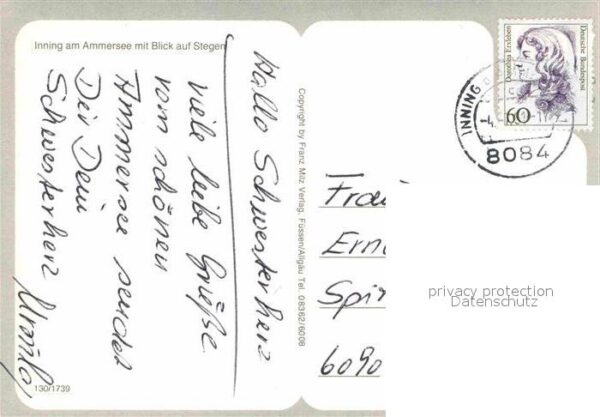 Inning am Ammersee mit Blick auf Stegen
Hallo Schwesterherz
viele liebe Grüße
vom schönen
Ammersee sendet
Dir Dein
Schwesterherz
130/1739
Copyright by Franz Milz Verlag, Füssen/Allgäu Tel. 08362/6008
Deutsche Bundespost
Dorothea Erxleben
60
INNING
8084
Frau
Ern
Spi
6090
privacy protection
Datenschutz